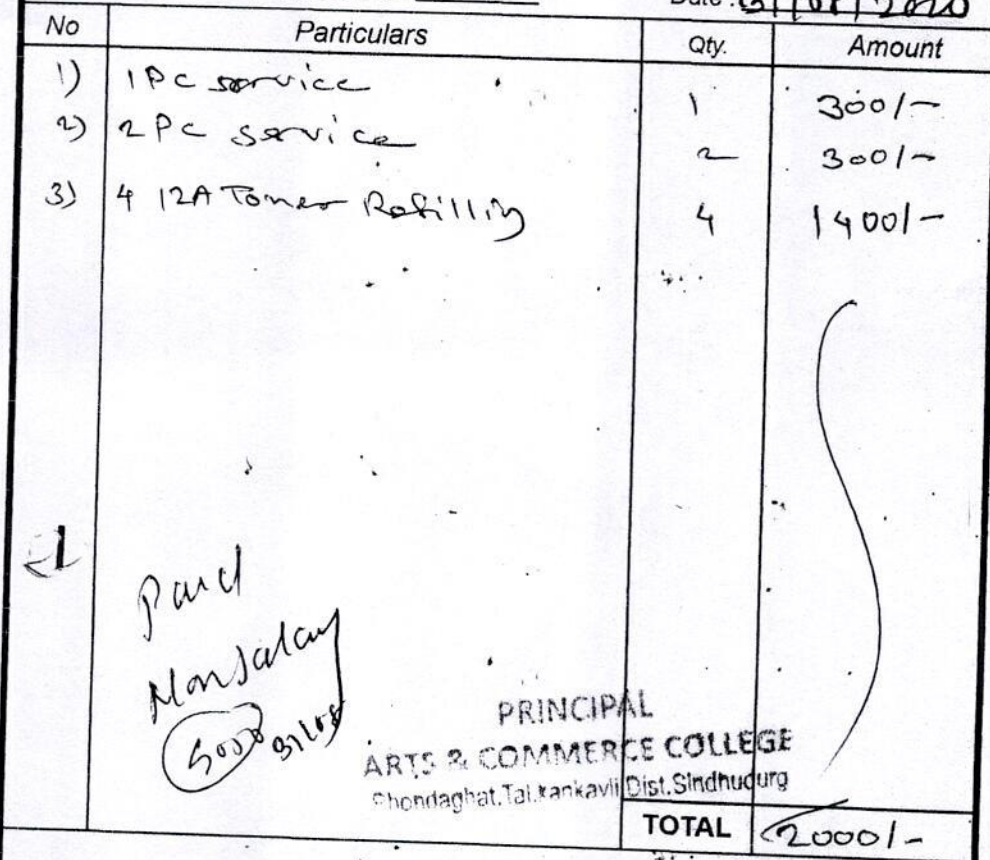 Date : 31/08/2020
No Particulars Qty. Amount
1) 1 PC service 1 300/-
2) 2 PC service 2 300/-
3) 4 12A Toner Refilling 4 1400/-
Paid
Non Salary
31/08
PRINCIPAL
ARTS & COMMERCE COLLEGE
Phondaghat.Tal.kankavli Dist.Sindhudurg
TOTAL 2000/-